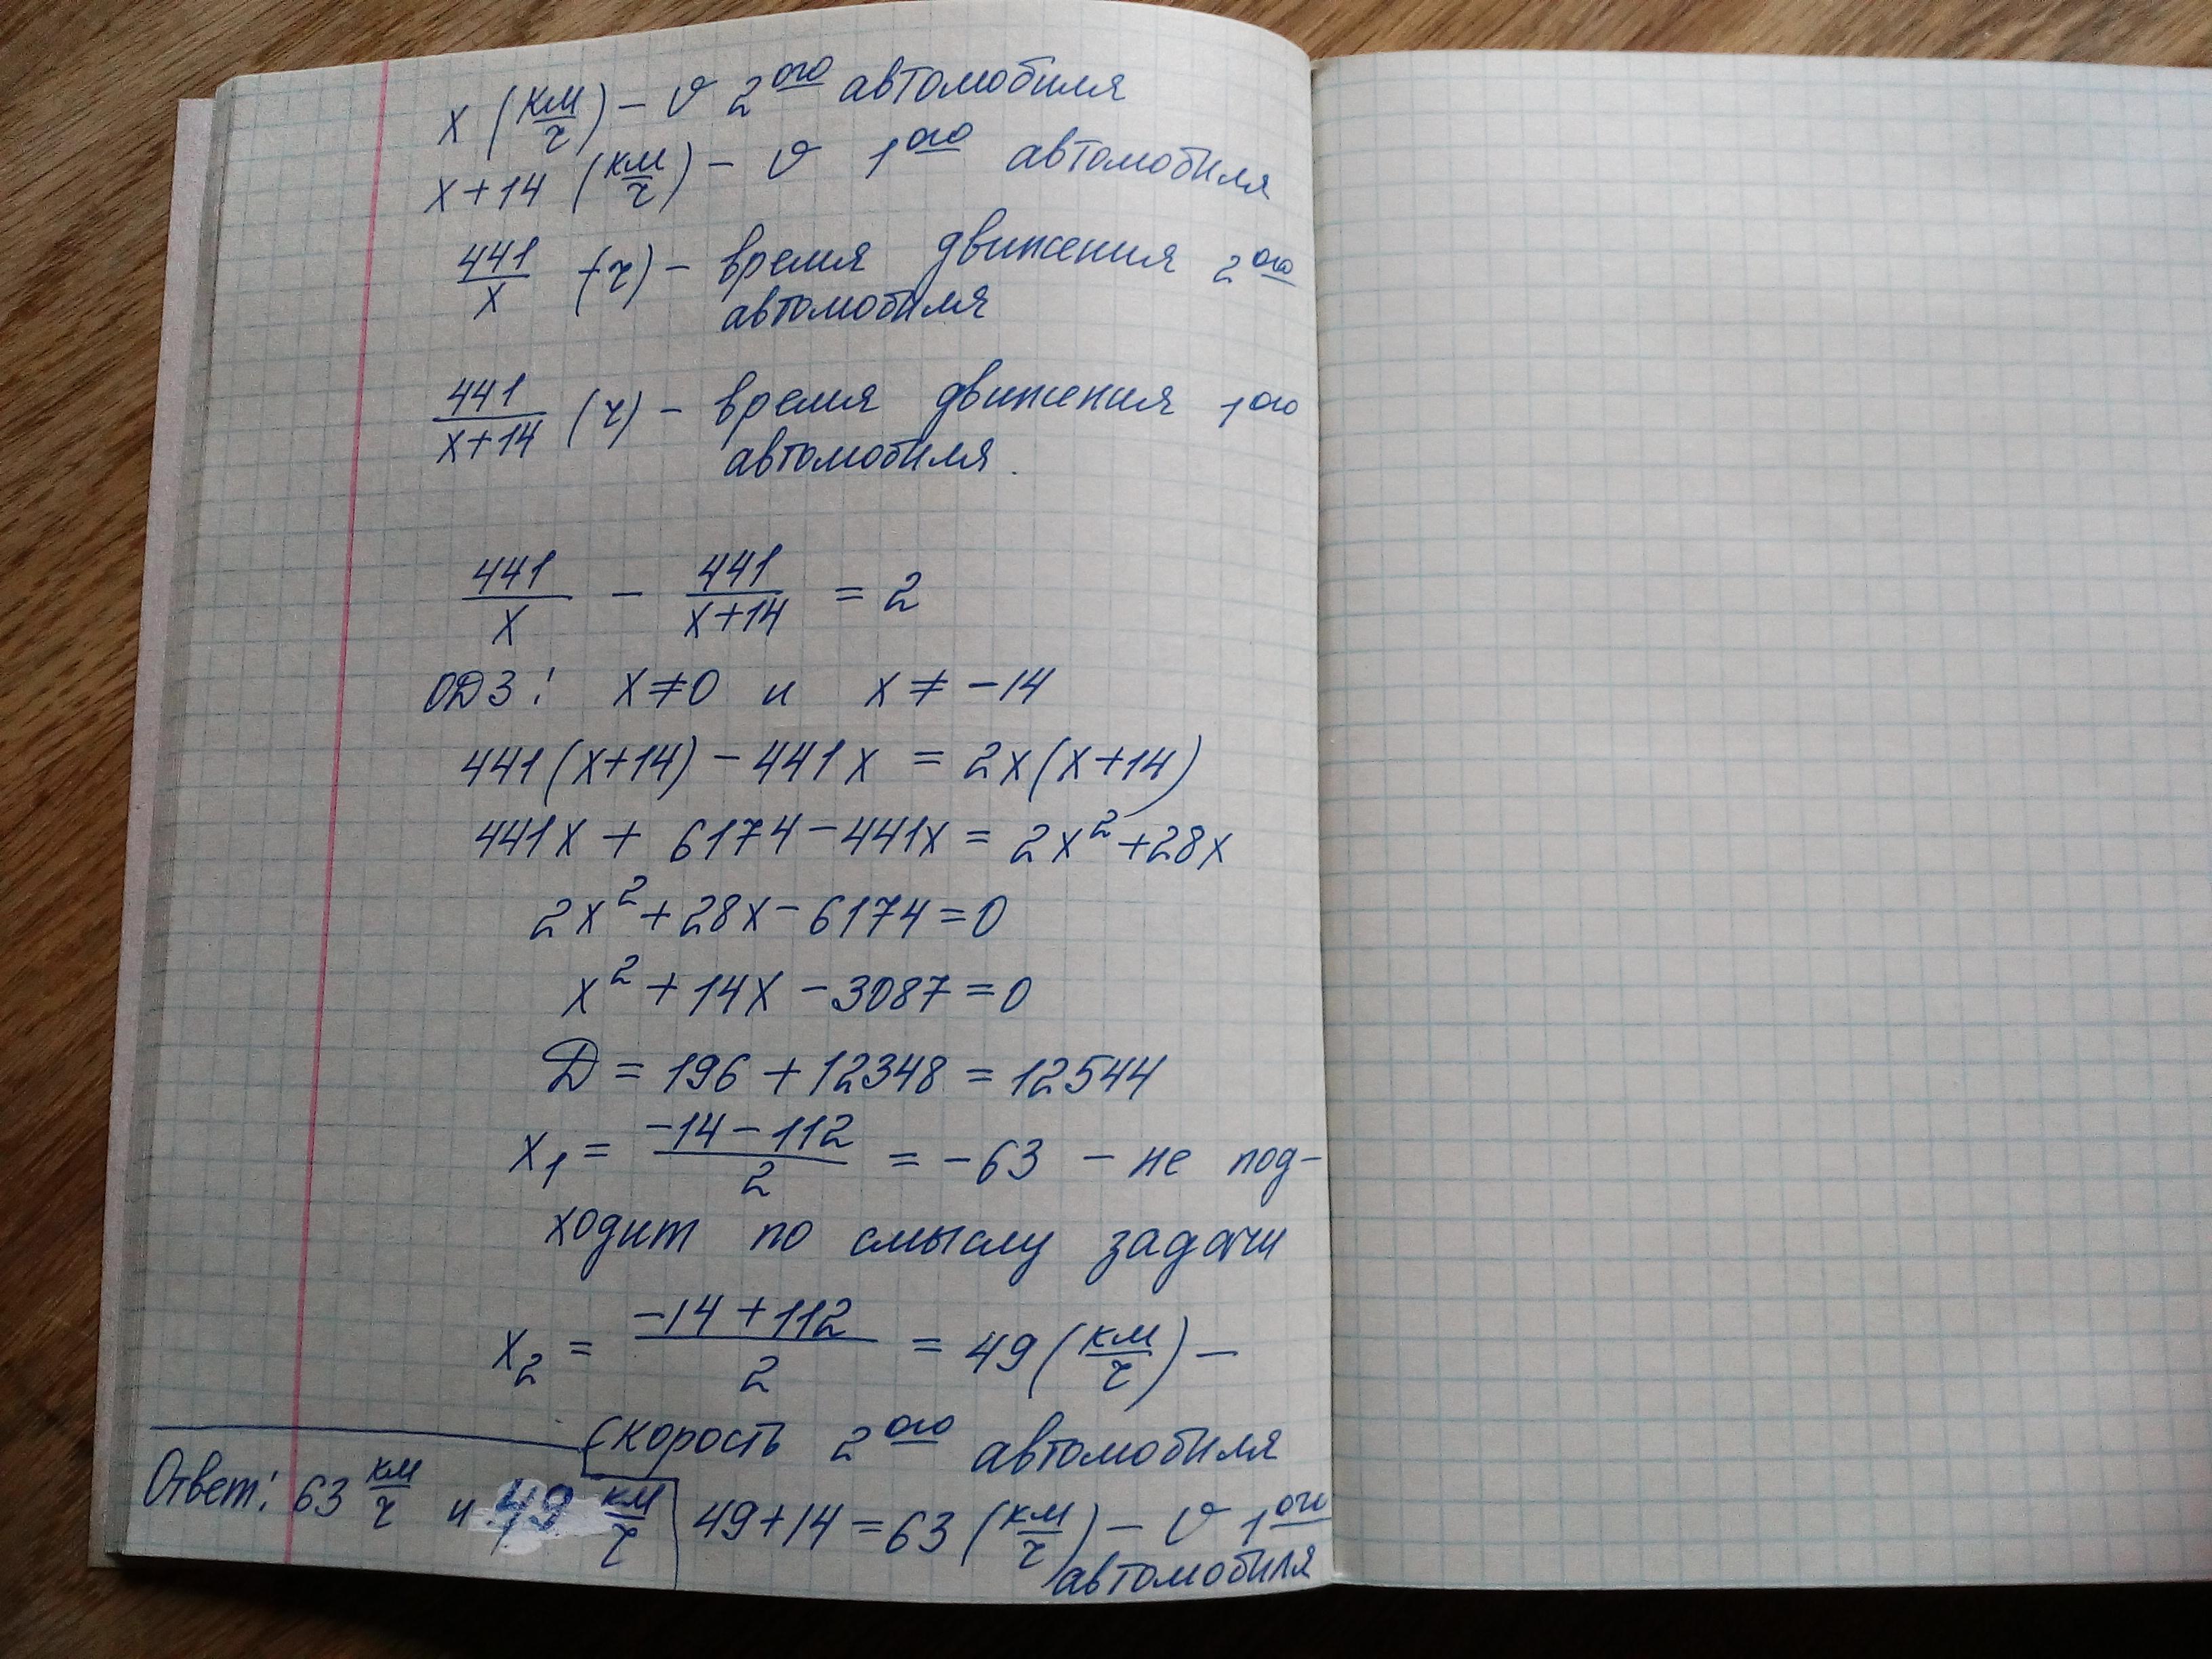 x (км/ч) – v 2ого автомобиля
x+14 (км/ч) – v 1ого автомобиля
441/x (ч) – время движения 2ого
автомобиля
441/(x+14) (ч) – время движения 1ого
автомобиля.
441/x – 441/(x+14) = 2
ОДЗ: x≠0 и x≠ –14
441(x+14) – 441x = 2x(x+14)
441x + 6174 – 441x = 2x² + 28x
2x² + 28x – 6174 = 0
x² + 14x – 3087 = 0
Д = 196 + 12348 = 12544
x₁ = (–14 – 112)/2 = –63 – не под-
ходит по смыслу задачи
x₂ = (–14 + 112)/2 = 49 (км/ч) –
скорость 2ого автомобиля
49+14 = 63 (км/ч) – v 1ого
автомобиля
Ответ: 63 км/ч и 49 км/ч